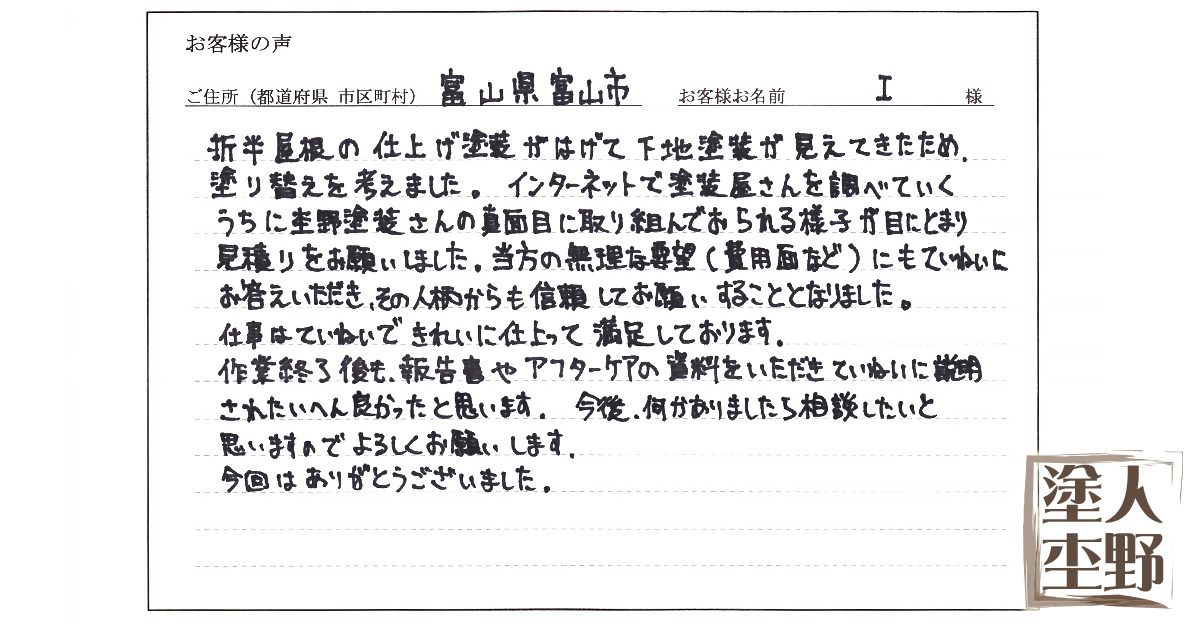 お客様の声
ご住所（都道府県 市区町村） 富山県富山市 お客様お名前 I 様
折半屋根の仕上げ塗装がはげて下地塗装が見えてきたため、
塗り替えを考えました。 インターネットで塗装屋さんを調べていく
うちに杢野塗装さんの真面目に取り組んでおられる様子が目にとまり
見積りをお願いしました。当方の無理な要望(費用面など)にもていねいに
お答えいただき、その人柄からも信頼してお願いすることとなりました。
仕事はていねいできれいに仕上って満足しております。
作業終了後も、報告書やアフターケアの資料をいただきていねいに説明
されたいへん良かったと思います。 今後、何かありましたら相談したいと
思いますのでよろしくお願いします。
今回はありがとうございました。
塗人
杢野